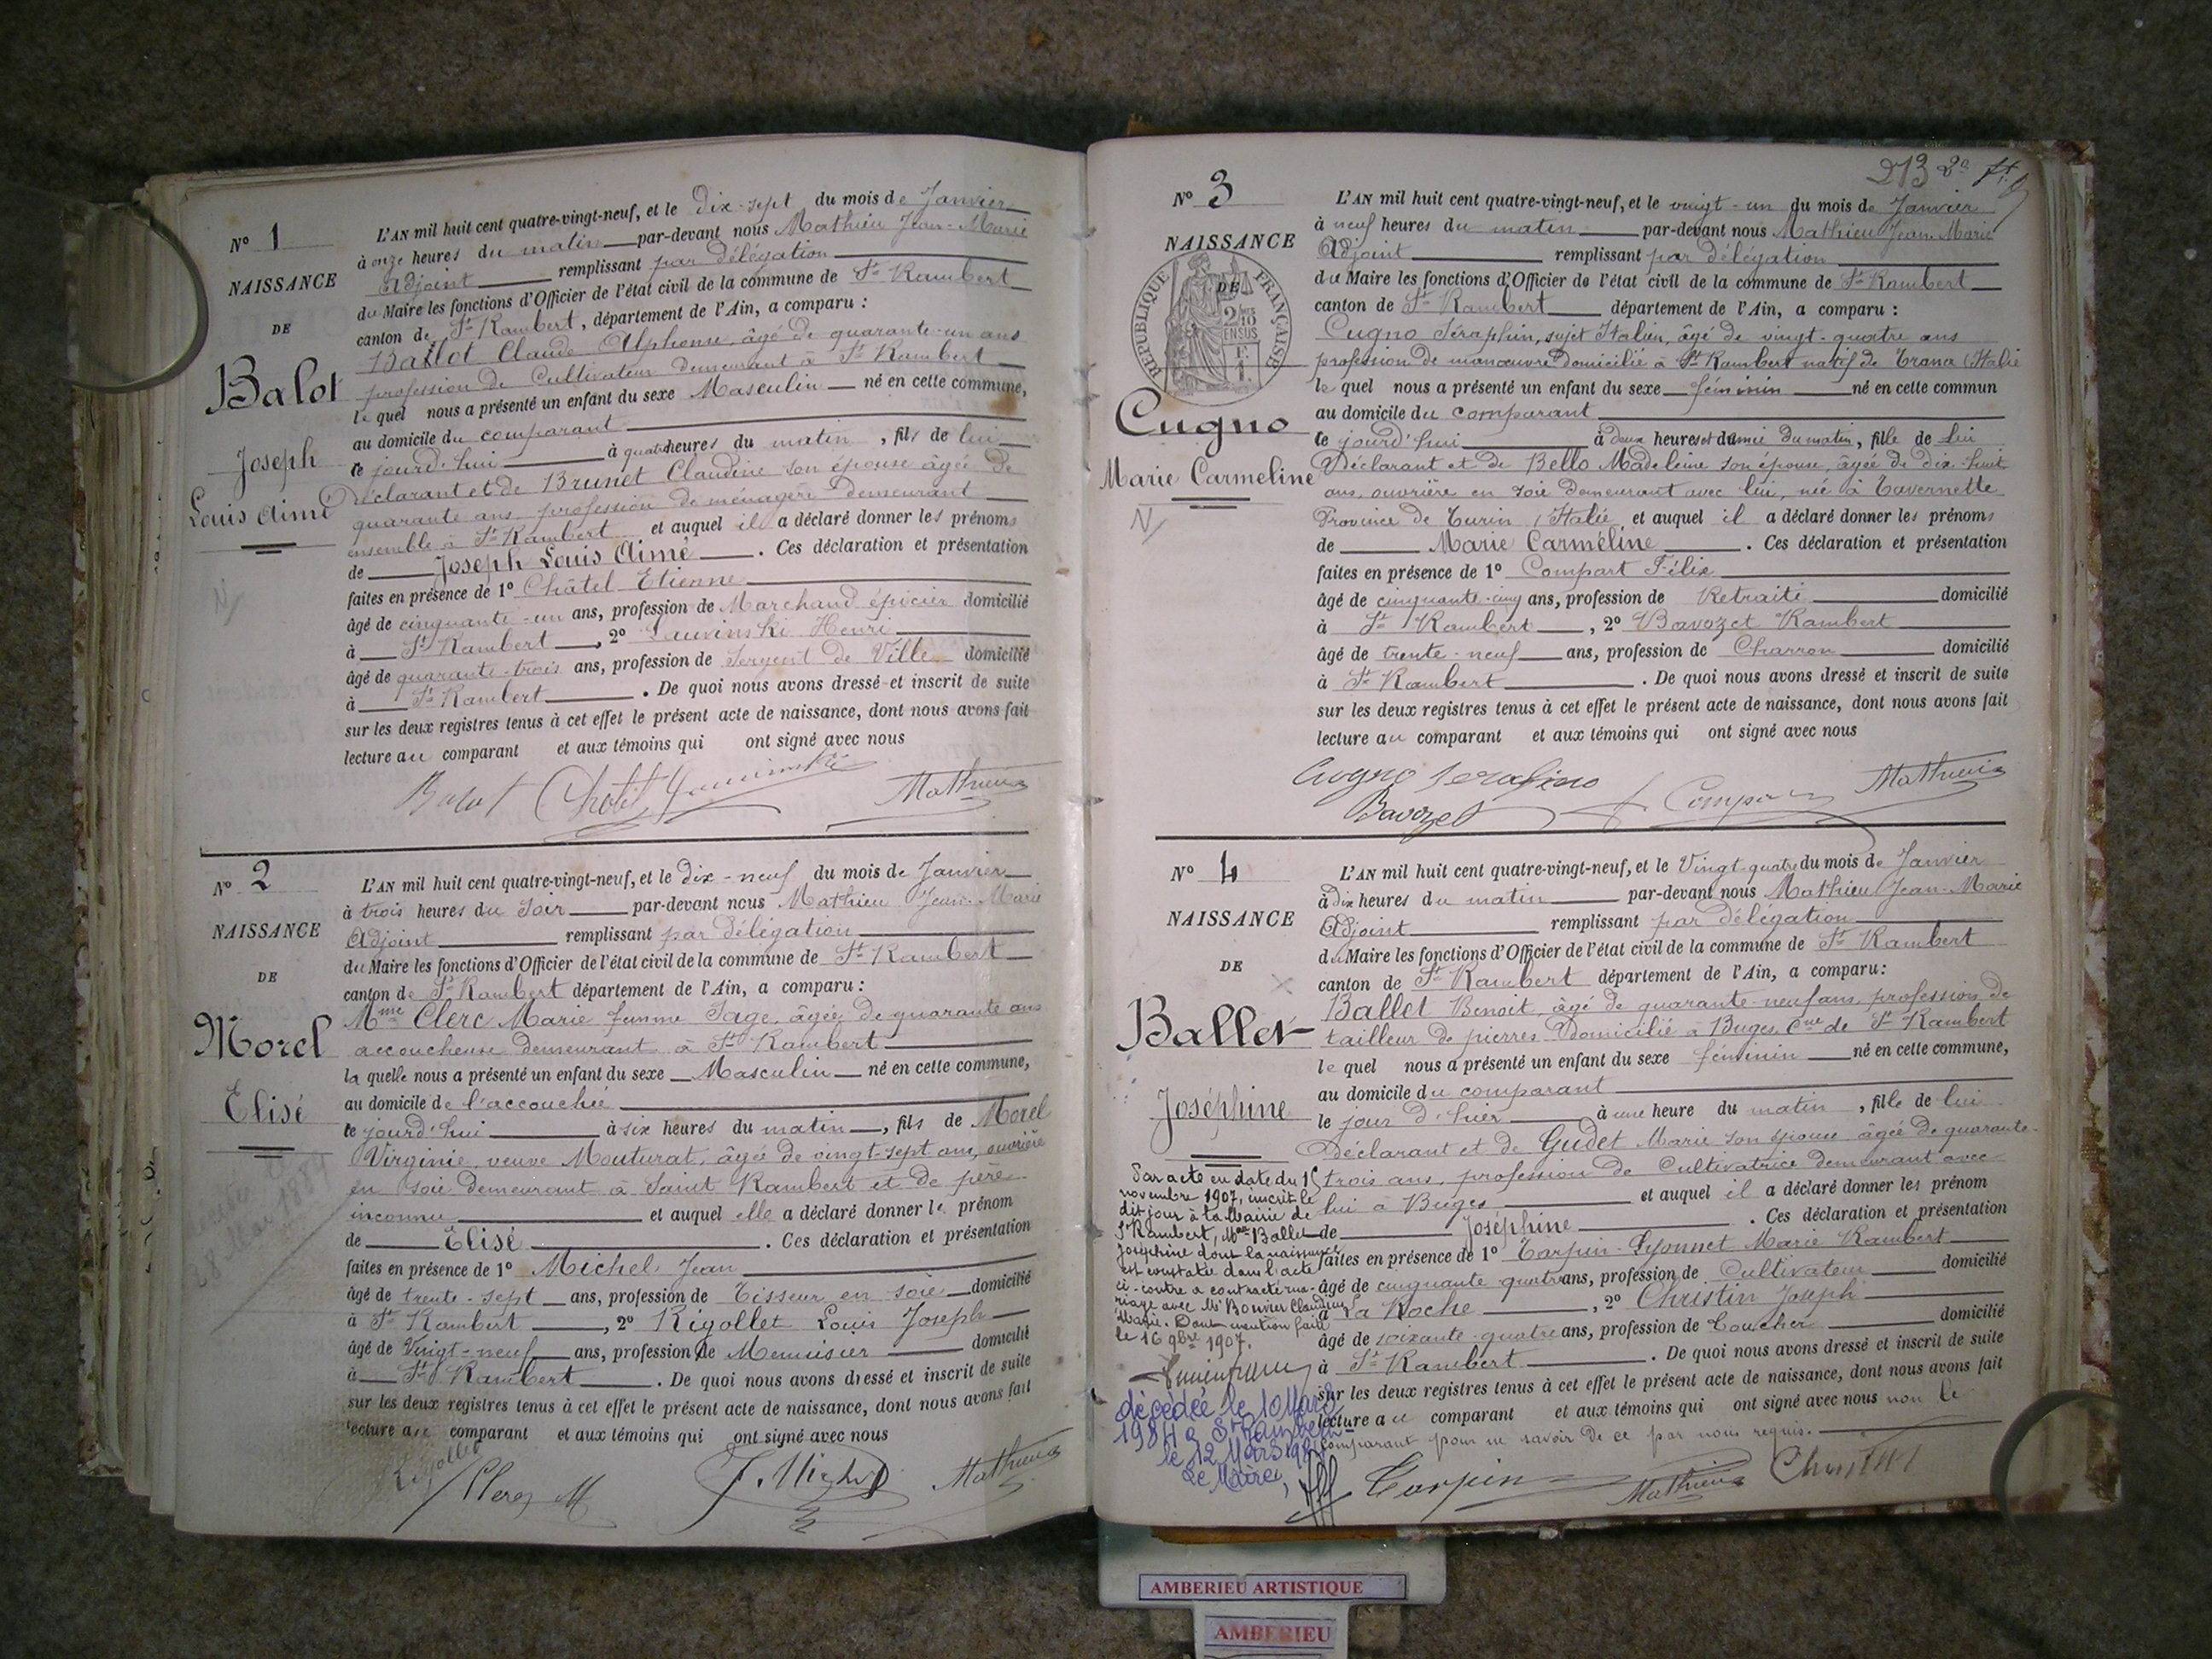 N° 1
NAISSANCE
DE
Balot
Joseph
Louis Aimé
L'AN mil huit cent quatre-vingt-neuf, et le dix-sept du mois de Janvier
à onze heures du matin par-devant nous Mathieu Jean-Marie
Adjoint remplissant par délégation
du Maire les fonctions d'Officier de l'état civil de la commune de St Rambert
canton de St Rambert, département de l'Ain, a comparu :
Ballot Claude Alphonse, âgé de quarante-un ans
profession de Cultivateur demeurant à St Rambert
le quel nous a présenté un enfant du sexe Masculin né en cette commune,
au domicile du comparant
ce jourd'hui à quatre heures du matin, fils de lui
Déclarant et de Brunet Claudine son épouse âgée de
quarante ans, profession de ménagère demeurant
ensemble à St Rambert et auquel il a déclaré donner les prénoms
de Joseph Louis Aimé. Ces déclaration et présentation
faites en présence de 1° Châtel Etienne
âgé de cinquante-un ans, profession de Marchand épicier domicilié
à St Rambert, 2° Henri
âgé de quarante-trois ans, profession de Sergent de Ville domicilié
à St Rambert. De quoi nous avons dressé et inscrit de suite
sur les deux registres tenus à cet effet le présent acte de naissance, dont nous avons fait
lecture au comparant et aux témoins qui ont signé avec nous
Balot Chatel Mathieu
N° 2
NAISSANCE
DE
Morel
Elisé
L'AN mil huit cent quatre-vingt-neuf, et le dix-neuf du mois de Janvier
à trois heures du soir par-devant nous Mathieu Jean-Marie
Adjoint remplissant par délégation
du Maire les fonctions d'Officier de l'état civil de la commune de St Rambert
canton de St Rambert département de l'Ain, a comparu :
Mme Clerc Marie femme Sage, âgée de quarante ans
accoucheuse demeurant à St Rambert
la quelle nous a présenté un enfant du sexe Masculin né en cette commune,
au domicile de l'accouchée
ce jourd'hui à six heures du matin, fils de Morel
Virginie, veuve Mouturat, âgée de vingt-sept ans, ouvrière
en soie demeurant à Saint Rambert et de père
inconnu et auquel elle a déclaré donner le prénom
de Elisé. Ces déclaration et présentation
faites en présence de 1° Michel Jean
âgé de trente-sept ans, profession de Tisseur en soie domicilié
à St Rambert, 2° Rigollet Louis Joseph
âgé de Vingt-neuf ans, profession de Menuisier domicilié
à St Rambert. De quoi nous avons dressé et inscrit de suite
sur les deux registres tenus à cet effet le présent acte de naissance, dont nous avons fait
lecture au comparant et aux témoins qui ont signé avec nous
Rigollet
Clerc M J. Michel Mathieu
213
N° 3
NAISSANCE
DE
REPUBLIQUE FRANÇAISE
Cugno
Marie Carmeline
L'AN mil huit cent quatre-vingt-neuf, et le vingt-un du mois de Janvier
à neuf heures du matin par-devant nous Mathieu Jean-Marie
Adjoint remplissant par délégation
du Maire les fonctions d'Officier de l'état civil de la commune de St Rambert
canton de St Rambert département de l'Ain, a comparu :
Cugno Séraphin, sujet Italien, âgé de vingt-quatre ans
profession de manœuvre domicilié à St Rambert natif de Trana (Italie
le quel nous a présenté un enfant du sexe féminin né en cette commun
au domicile du comparant
ce jourd'hui à deux heures et demie du matin, fille de lui
Déclarant et de Bello Madeleine son épouse, âgée de dix-huit
ans, ouvrière en soie demeurant avec lui, née à Tavernette
Province de Turin (Italie et auquel il a déclaré donner les prénoms
de Marie Carméline. Ces déclaration et présentation
faites en présence de 1° Compart Félix
âgé de cinquante-cinq ans, profession de Retraité domicilié
à St Rambert, 2° Bavozet Rambert
âgé de trente-neuf ans, profession de Charron domicilié
à St Rambert. De quoi nous avons dressé et inscrit de suite
sur les deux registres tenus à cet effet le présent acte de naissance, dont nous avons fait
lecture au comparant et aux témoins qui ont signé avec nous
Cugno Serafino Mathieu
Bavozet
N° 4
NAISSANCE
DE
Ballet
Joséphine
Par acte en date du 15
novembre 1907, inscrit le
dit jour à la Mairie de
St Rambert, Mme Ballet
Joséphine dont la naissance
est constatée dans l'acte
ci-contre a contracté ma-
riage avec Mr Bouvier Claudius
Marie. Dont mention faite
le 16 9bre 1907.
décédée le 10 Mars
1984 à St Rambert
le 12 Mars 1984
Le Maire,
L'AN mil huit cent quatre-vingt-neuf, et le Vingt-quatre du mois de Janvier
à dix heures du matin par-devant nous Mathieu Jean-Marie
Adjoint remplissant par délégation
du Maire les fonctions d'Officier de l'état civil de la commune de St Rambert
canton de St Rambert département de l'Ain, a comparu:
Ballet Benoit, âgé de quarante-neuf ans, profession de
tailleur de pierres domicilié à Buges, Cne de St Rambert
le quel nous a présenté un enfant du sexe féminin né en cette commune,
au domicile du comparant
le jour d'hier à une heure du matin, fille de lui
Déclarant et de Gudet Marie son épouse âgée de quarante-
trois ans, profession de Cultivatrice demeurant avec
lui à Buges et auquel il a déclaré donner les prénom
de Joséphine. Ces déclaration et présentation
faites en présence de 1° Tarpin-Lyonnet Marie Rambert
âgé de cinquante quatre ans, profession de Cultivateur domicilié
à La Roche, 2° Christin Joseph
âgé de soixante-quatre ans, profession de domicilié
à St Rambert. De quoi nous avons dressé et inscrit de suite
sur les deux registres tenus à cet effet le présent acte de naissance, dont nous avons fait
lecture au comparant et aux témoins qui ont signé avec nous non le
comparant pour ne savoir de ce par nous requis.
Tarpin Mathieu Christin
AMBERIEU ARTISTIQUE
AMBERIEU